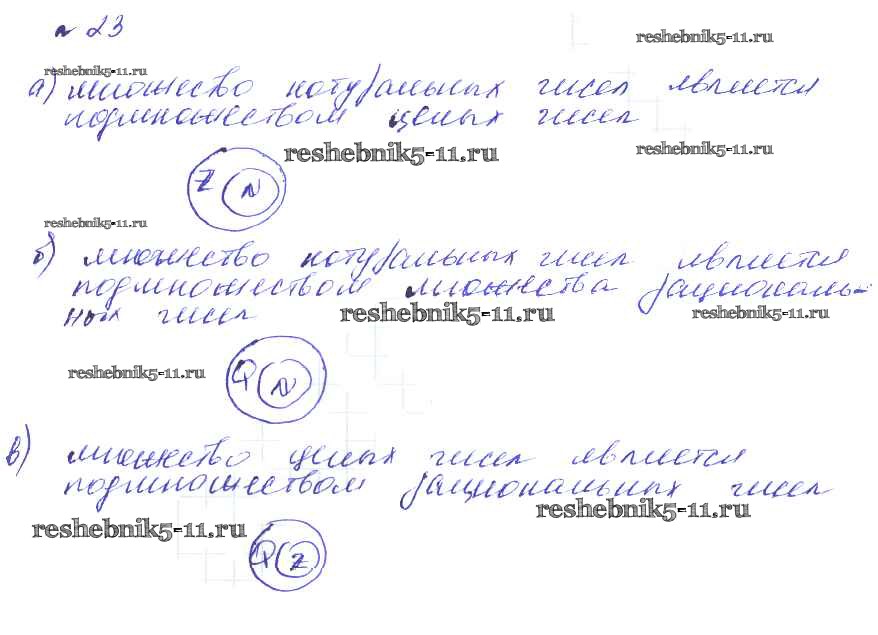 № 23
reshebnik5-11.ru
reshebnik5-11.ru
а) множество натуральных чисел является
подмножеством целых чисел
reshebnik5-11.ru
reshebnik5-11.ru
Z N
reshebnik5-11.ru
б) множество натуральных чисел является
подмножеством множества рациональ-
ных чисел
reshebnik5-11.ru
reshebnik5-11.ru
reshebnik5-11.ru
Q N
в) множество целых чисел является
подмножеством рациональных чисел
reshebnik5-11.ru
reshebnik5-11.ru
Q Z